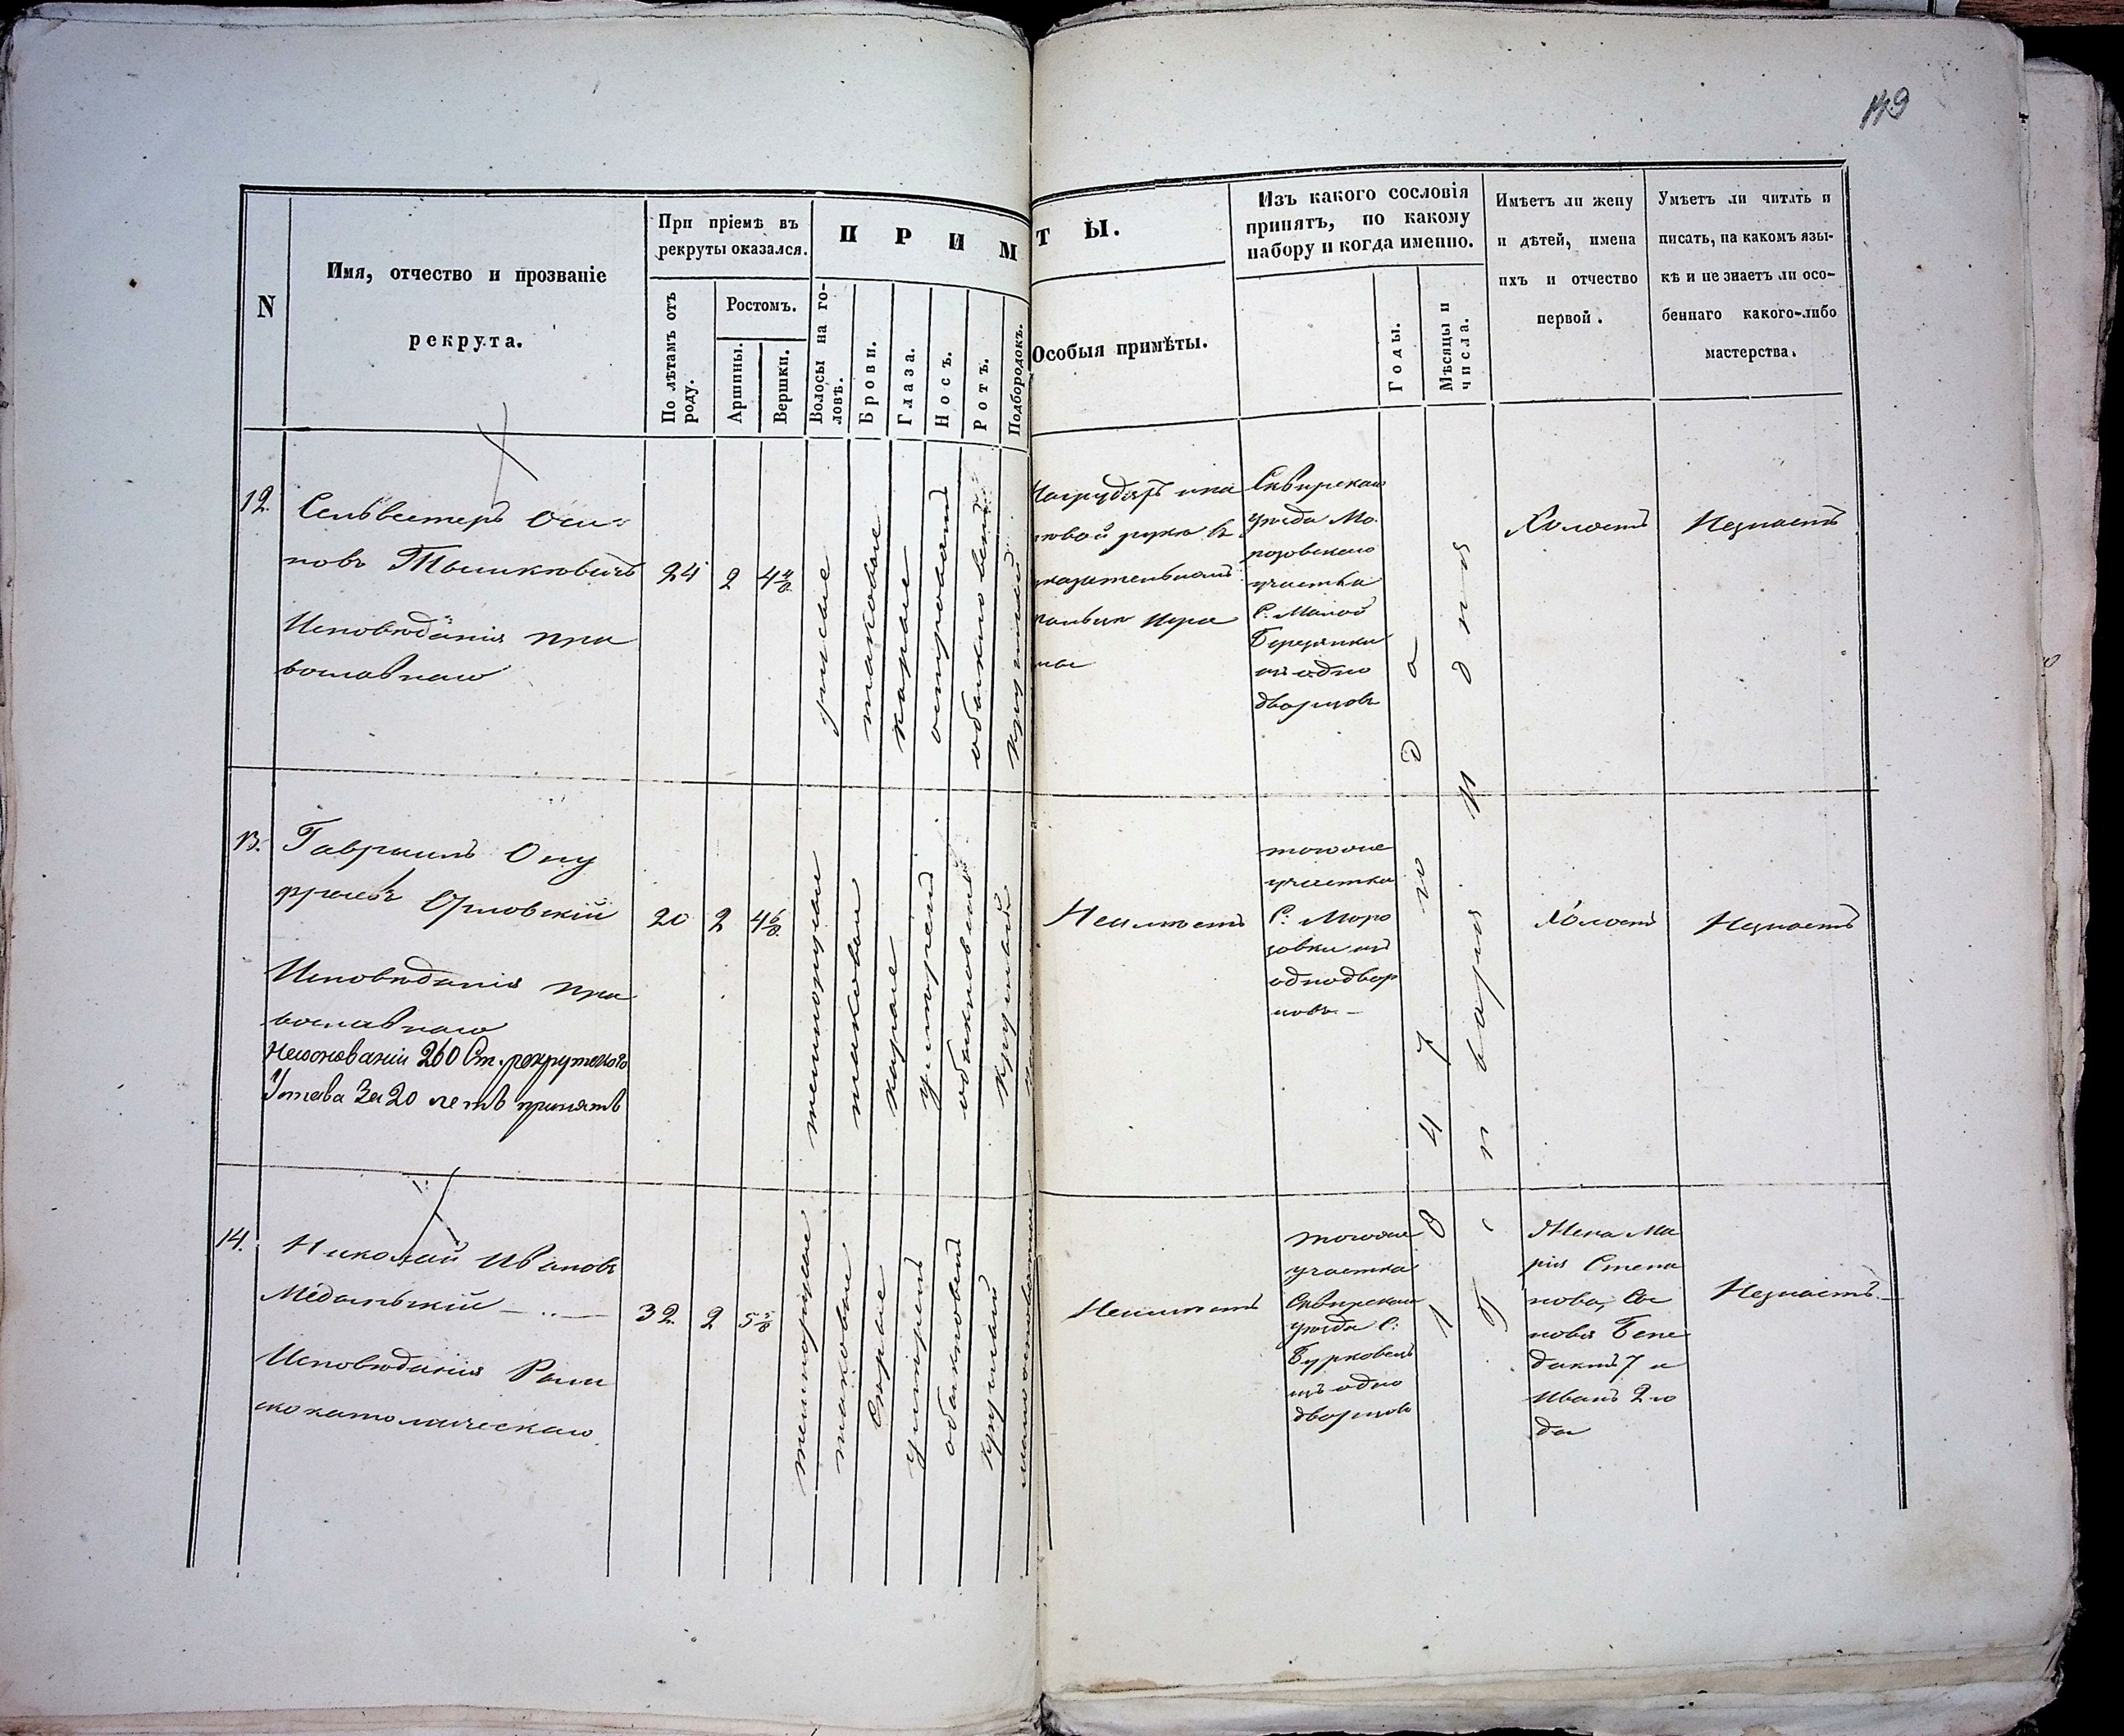 149
N
Имя, отчество и прозваніе
рекрута.
При пріемѣ въ
рекруты оказался.
По лѣтамъ отъ
роду.
Ростомъ.
Аршины.
Вершки.
П Р И М
Волосы на го-
ловѣ.
Брови.
Глаза.
Носъ.
Ротъ.
Подбородокъ.
Т Ы.
Особыя примѣты.
Изъ какого сословія
принятъ, по какому
набору и когда именно.
Годы.
Мѣсяцы и
числа.
Имѣетъ ли жену
и дѣтей, имена
ихъ и отчество
первой.
Умѣетъ ли читать и
писать, на какомъ язы-
кѣ и не знаетъ ли осо-
беннаго какого-либо
мастерства.
12.
Сельвестеръ Оси-
повъ
Исповѣданія пра
вославнаго
24
2
4 4/8
русые
таковые
карие
островатъ
обыкновен
круглый
левой руке
указательномъ
Сквирскаго
уѣзда Мо-
розовскаго
участка
С. Малой
Березянки
изъ одно
дворцовъ
Холостъ
Незнаетъ
13.
Гавриилъ Ону
фріевъ Орловскій
Исповѣданія пра
вославнаго
На основаніи 260 Ст. рекрутскаго
Устава За 20 летъ принятъ
20
2
4 6/8
темнорусые
таковые
карие
умѣрен
обыкновен
круглый
Неимѣетъ
тогоже
участка
С: Моро
зовки изъ
однодвор
цовъ
Холостъ
Незнаетъ
14.
Николай Ивановъ
Исповѣданія Рим
скокатолическаго
32
2
5 5/8
темнорусые
таковые
Серые
умѣренъ
обыкновен
круглый
Неимѣетъ
тогоже
участка
Сквирскаго
уѣзда С:
Бурковецъ
изъ одно
дворцовъ
1847 года
5 Генваря дня
Жена Ма
рія Степа
нова, Сы
новья Бене
диктъ 7 и
Иванъ 2 го
да
Незнаетъ